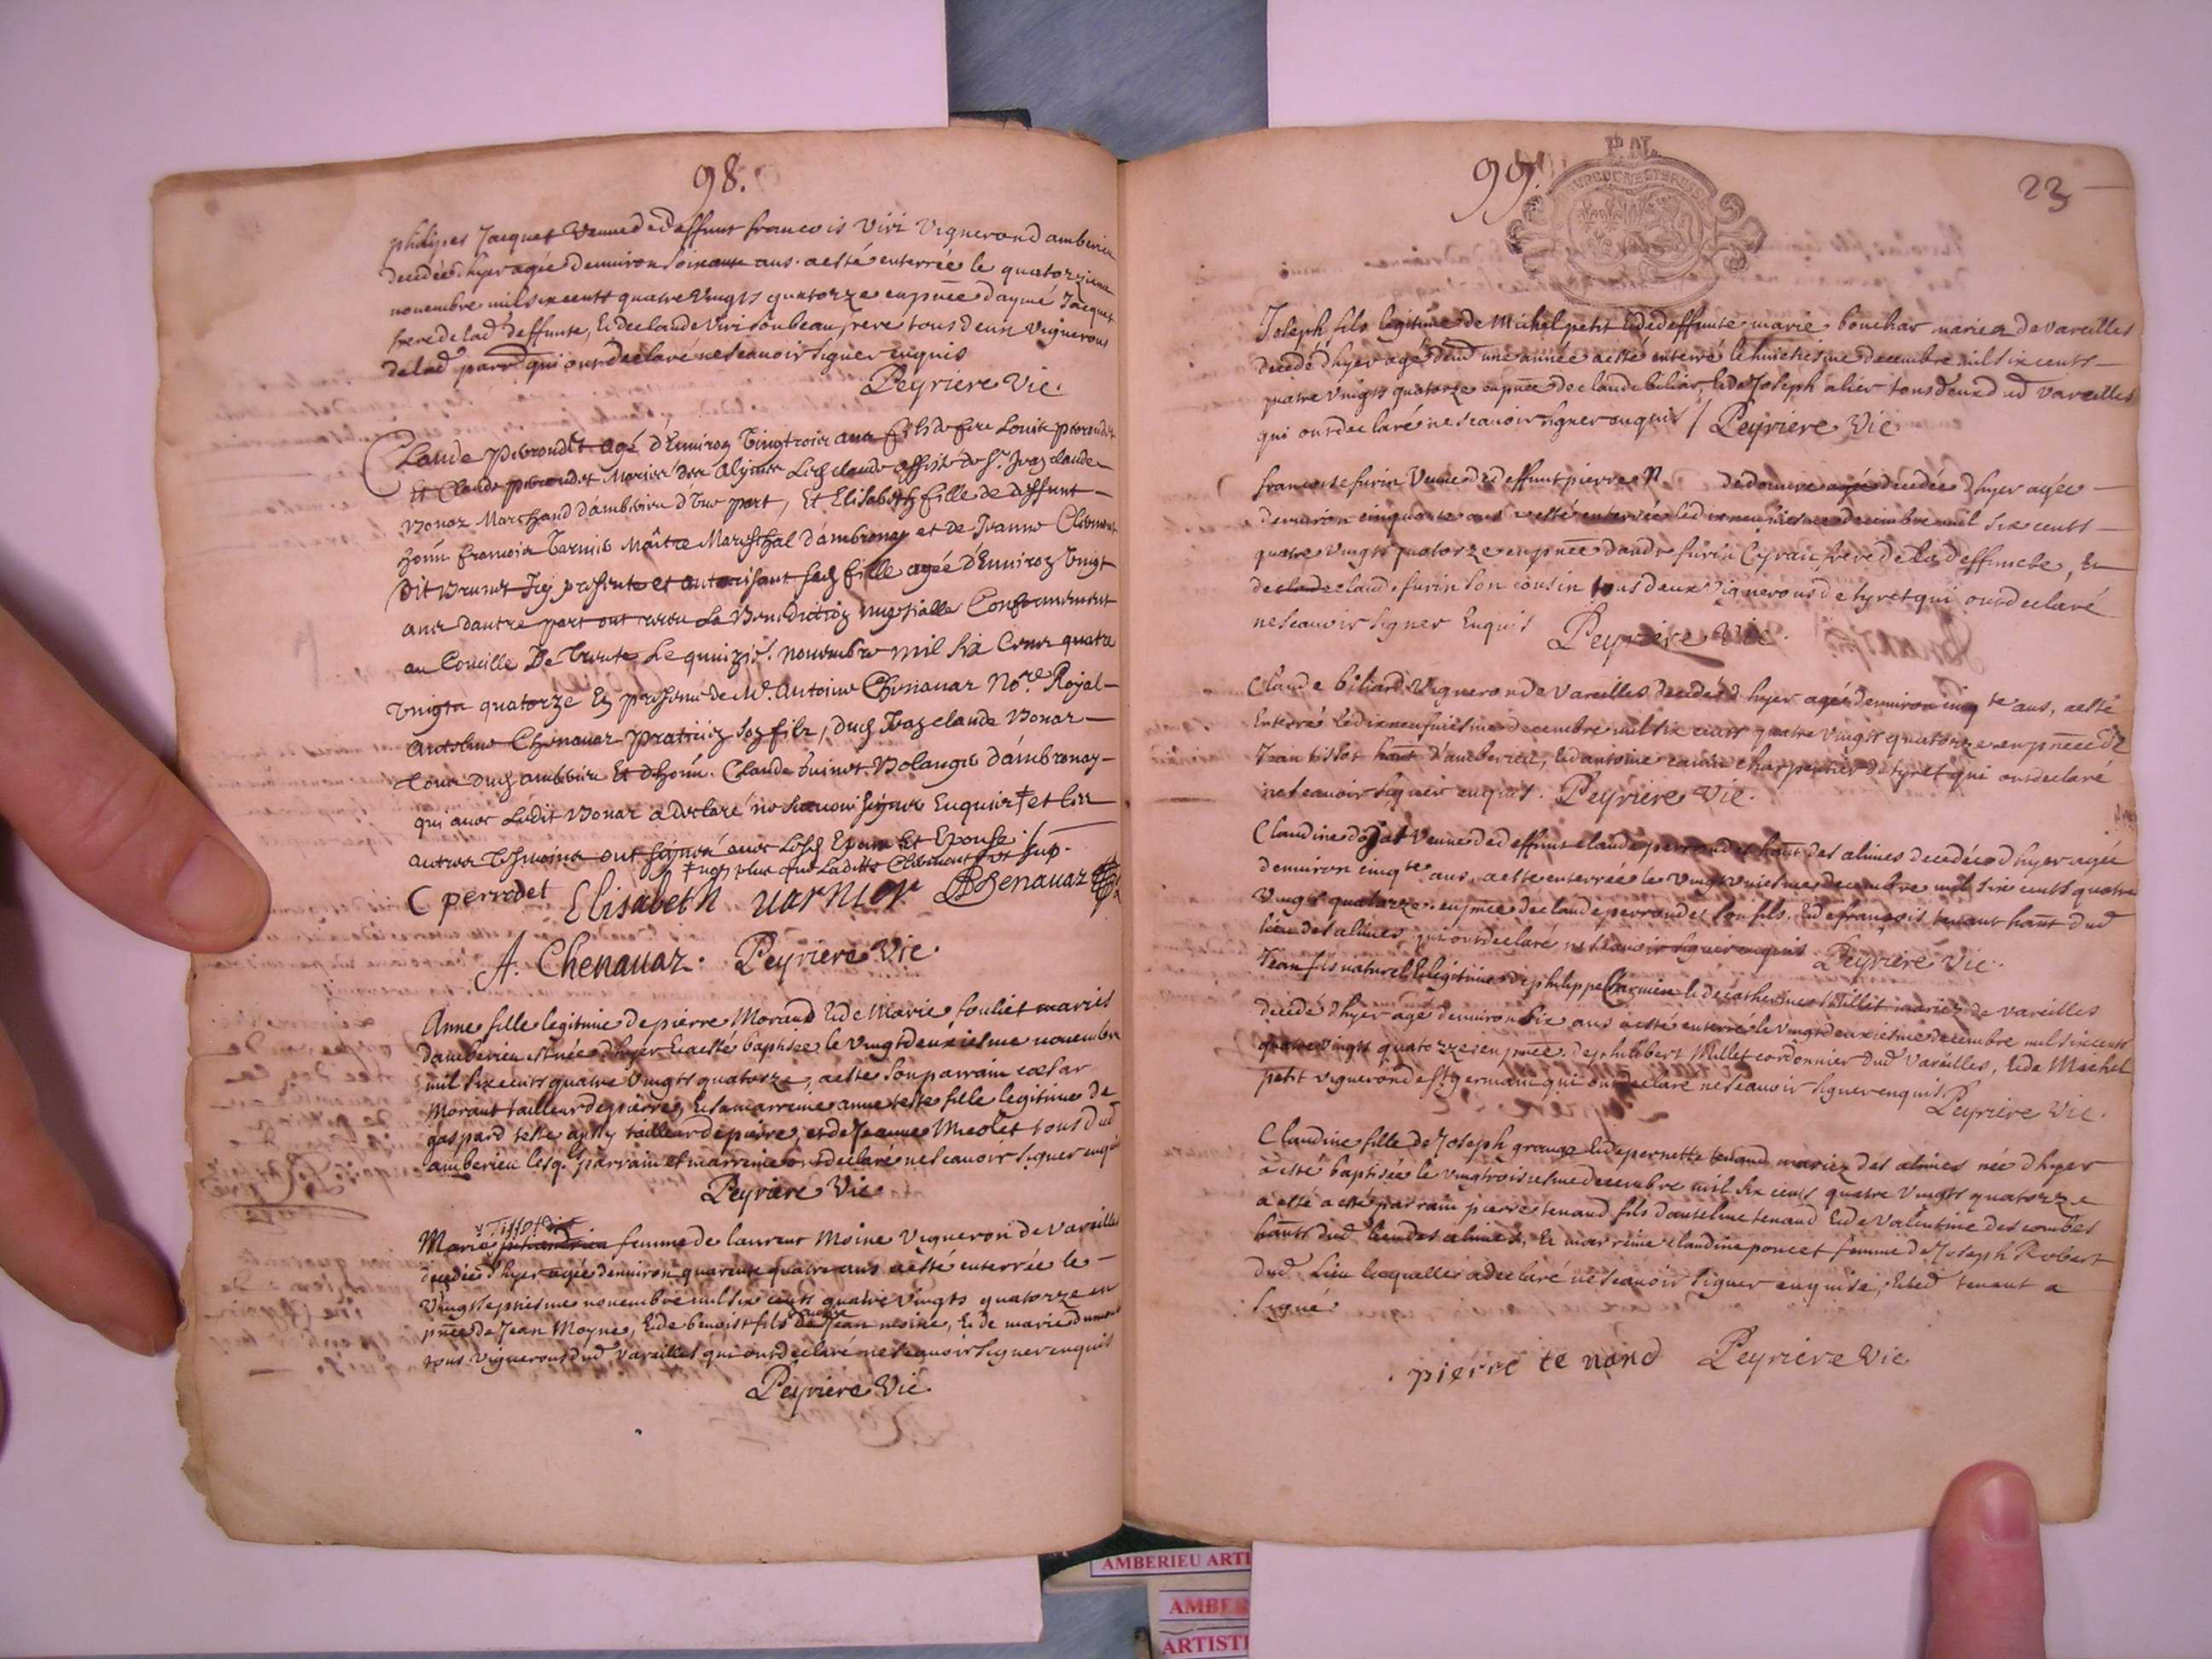 98.
philipes Jacquet Veuve de deffunt francois Viri Vigneron d amberieu
decedée d'hyer agée d'environ soixante ans. a esté enterrée le quatorzieme
novembre mil six cents quatre vingts quatorze en pnce d'aymé Jacquet
frere de lad deffunte, & de claude Viri son beau frere tous deux vignerons
de lad parr qui ont declaré ne scauoir signer enquis
Peyriere Vic.
Claude perrondet agé d'Enuiron Vingt trois ans fils de feu Louis perrondet
Et Claude perrondet Mariés des Alymes Led claude assisté de Sr. Jean claude
Bonaz Marchand d'ambeirieu d'Vne part, Et Elisabeth fille de deffunt
honn francois Varnier Maitre Mareschal d'ambronay et de Jeanne Clemont
Dit Brunet Icy presente et autorisant sad fille agée d'Enuiron Vingt
ans dautre part ont receu La Benediction nuptialle Conformement
au Concille De Trente Le quinzie. nouembre mil six Cents quatre
vingts quatorze En presence de Me. Antoine Chenauaz No.re Royal
Antoine Chenauaz praticien son fils, Dud Jean claude Bonaz
tous Dud ambeirieu Et d'honn. Claude Bolangé d'ambronay
qui auec Ledit Bonaz a declaré ne scauoir signer Enquis † et les
autres tesmoins ont signés auec Lesd Epoux Et Epouse
† non plus que Laditte Clemont
C perrodet Elisabeth varnier Chenauaz
A. Chenauaz. Peyriere Vic.
Anne fille legitime de pierre Morand & de Marie fouliet mariés
d'amberieu est née d'hyer & a esté baptisée le Vingtdeuxiesme nouembre
mil six cents quatre Vingts quatorze, a esté son parrain cæsar
Morant tailleur de pierre, & sa marreine anne teste fille legitime de
gaspard teste aussy tailleur de pierre, et de Jeanne Micolet tous dud
amberieu lesq. parrain et marreine ont declaré ne scauoir signer enquis
Peyriere Vic.
Tissot
Marie femme de laurent Moine Vigneron de Vareilles
decedée d'hyer agée d'enuiron quarente quatre ans a esté enterrée le
Vingtseptiesme nouembre mil six cents quatre Vingts quatorze en
pnce de Jean Moyne, & de benoist fils de Jean moine, & de marie
tous Vignerons dud Vareilles qui ont declaré ne scauoir signer enquis
Peyriere Vic.
99.
23
Joseph fils legitime de Michel petit & de deffunte marie bouchar mariez de Vareilles
decedé d'hyer agé d'env une année a esté enterré le huictiesme decembre mil six cents
quatre Vingts quatorze en pnce de claude biliar, & de Joseph alier tous deux dud Vareilles
qui ont declaré ne scauoir signer enquis / Peyriere Vic
francoise furin Veuve de deffunt pierre N de douure decedée d'hyer agée
d'enuiron cinquante ans a esté enterrée le dixneufiesme decembre mil six cents
quatre Vingts quatorze en pnce d'andre furin frere de la deffuncte, &
de claude furin son cousin tous deux Vignerons de tyret qui ont declaré
ne scauoir signer Enquis Peyriere Vic.
Claude biliard Vigneron de Vareilles decedé d'hyer agé d'enuiron cinq te ans, a esté
Enterré le dixneufuiesme decembre mil six cents quatre Vingts quatorze en pnce de
Jean tissot d'amberieu, & d'antoine carrin charpentier de tyret qui ont declaré
ne scauoir signer enquis. Peyriere Vic.
Claudine dojat Veuve de deffunt claude perrondet des alimes decedée d'hyer agée
d'enuiron cinq te ans, a esté enterrée le Vingtuniesme decembre mil six cents quatre
Vingts quatorze, en pnce de claude perrondet son fils, & de francois tenant dud
lieu des alimes, qui ont declaré ne scauoir signer enquis Peyriere Vic.
Jean fils naturel & legitime de philippe & de catherine Millet mariez de Vareilles
decedé d'hyer agé d'enuiron six ans a esté enterré le Vingtdeuxiesme decembre mil six cents
quatre Vingts quatorze en pnce de philibert Millet cordonnier dud Vareilles, & de Michel
petit vigneron de St germain qui ont declaré ne scauoir signer enquis
Peyriere Vic.
Claudine fille de Joseph & de pernette tenand mariez des alimes née d'hyer
a esté baptisée le Vingtroisiesme decembre mil six cents quatre Vingts quatorze
a esté a esté parrain pierre tenand fils d'anselme tenand & de Valentine des combes
dud lieu des alimes, & marreine claudine poncet femme de Joseph Robert
dud Lieu laquelle a declaré ne scauoir signer enquise, & led tenant a
signé.
pierre tenand Peyriere Vic
AMBERIEU ARTI
AMBE
ARTISTI